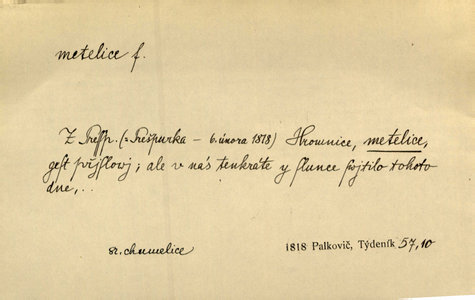 metelice f.
Z Pressp. (= Prešpurka – 6. února 1818) Hromnice, metelice,
gest přjslowj; ale v nás tenkráte y slunce swjtilo tohoto
dne,..
sr. chumelice
1818 Palkovič, Týdeník 57,10